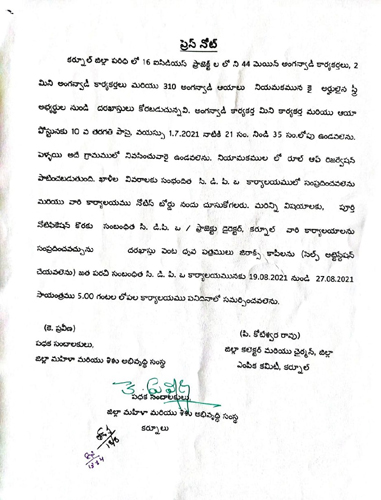 ప్రెస్ నోట్
కర్నూల్ జిల్లా పరిధి లో 16 ఐసిడియస్ ప్రాజెక్ట్ ల లో ని 44 మెయిన్ అంగన్వాడీ కార్యకర్తలు, 2
మిని అంగన్వాడీ కార్యకర్తలు మరియు 310 అంగన్వాడీ ఆయాలు నియమకమున కై అర్హులైన స్త్రీ
అభ్యర్థుల నుండి దరఖాస్తులు కోరబడుచున్నవి. అంగన్వాడీ కార్యకర్త మిని కార్యకర్త మరియు ఆయా
పోస్టునకు 10 వ తరగతి పాసై, వయస్సు 1.7.2021 నాటికి 21 సం. నిండి 35 సం.లోపు ఉండవలెను.
పెళ్ళయి అదే గ్రామములో నివసించువారై ఉండవలెను. నియామకముల లో రూల్ ఆఫ్ రిజర్వేషన్
పాటించబడుతుంది. ఖాళీల వివరాలకు సంభందిత సి. డి. పి. ఓ కార్యాలయములో సంప్రదించవలెను
మరియు వారి కార్యాలయము నోటీస్ బోర్డు నందు చూసుకోగలరు. మరిన్ని విషయాలకు, పూర్తి
నోటిఫికెషన్ కొరకు సంబంధిత సి. డి.పి. ఓ / ప్రాజెక్టు డైరెక్టర్, కర్నూల్ వారి కార్యాలయాలను
సంప్రదించవచ్చును దరఖాస్తు వెంట ధృవ పత్రములు జిరాక్స్ కాపీలను (సెల్ఫ్ అట్టిస్టెషన్
చేయవలెను) జత పరచి సంబంధిత సి. డి. పి. ఓ కార్యాలయమునకు 19.08.2021 నుండి 27.08.2021
సాయంత్రము 5.00 గంటల లోపల కార్యాలయము పనిదినాలో సమర్పించవలెను.
(జె. ప్రవీణ)
పథక సంచాలకులు,
జిల్లా మహిళా మరియు శిశు అభివృద్ధి సంస్థ
(పి. కోటేశ్వర రావు)
జిల్లా కలెక్టర్ మరియు ఛైర్మన్, జిల్లా
ఎంపిక కమిటి, కర్నూల్
పథక సంచాలకులు,
జిల్లా మహిళా మరియు శిశు అభివృద్ధి సంస్థ
కర్నూలు